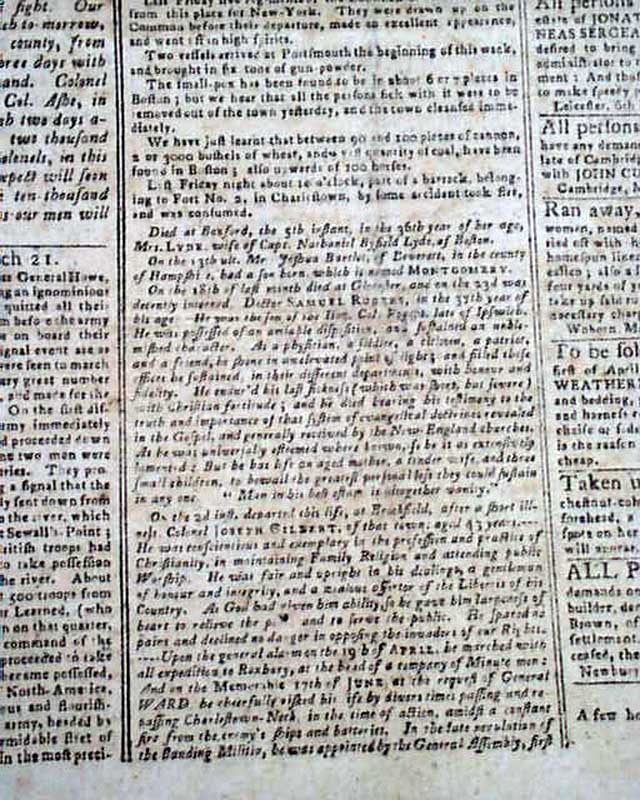 fight. Our
ch to-morrow,
county, from
three days with
and. Colonel
Col. Ashe, in
two days a-
two thousand
olonels, in this
expect will soon
ten thousand
our men will
ch 21.
General Howe,
an ignominious
quitted all their
befo e the army
on board their
signal event are as
were seen to march
ery great number
and made for the
On the first dif-
rmy immediately
nd proceeded down
two men were
tries. They pro-
g a signal that the
ly sent down from
the river, which
Sewall's Point ;
ritish troops had
to take possession
he river. About
500 troops from
Learned, (who
n on that quarter,
command of the
proceeded to take
became possessed,
North-America,
ous and flourish-
army, headed by
rmidable fleet of
in the most preci-
from this place for New-York. They were drawn up on the
Common before their departure, made an excellent appearance,
and went off in high spirits.
Two vessels arrived at Portsmouth the beginning of this week,
and brought in six tons of gun-powder.
The small-pox has been found to be in about 6 or 7 places in
Boston ; but we hear that all the persons sick with it were to be
removed out of the town yesterday, and the town cleansed imme-
diately.
We have just learnt that between 90 and 100 pieces of cannon,
2 or 3000 bushels of wheat, and a vast quantity of coal, have been
found in Boston ; also upwards of 100 horses.
Last Friday night about 10 o'clock, part of a barrack, belong-
ing to Fort No. 2, in Charlestown, by some accident took fire,
and was consumed.
Died at Boxford, the 5th instant, in the 36th year of her age,
Mrs. LYDE, wife of Capt. Nathaniel Byfield Lyde, of Boston.
On the 13th ult. Mr. Joshua Bartlet, of Everett, in the county
of Hampshire, had a son born, which is named MONTGOMERY.
On the 18th of last month died at Glocester, and on the 23d was
decently interred, Doctor SAMUEL ROGERS, in the 37th year of
his age. He was the son of the Hon. Col. Rogers, late of Ipswich.
He was possessed of an amiable disposition, and sustained an unble-
mished character. As a physician, a soldier, a citizen, a patriot,
and a friend, he shone in an elevated point of light ; and filled those
offices he sustained, in their different departments, with honour and
fidelity. He endur'd his last sickness (which was short, but severe)
with Christian fortitude ; and he died bearing his testimony to the
truth and importance of that system of evangelical doctrines revealed
in the Gospel, and generally received by the New-England churches.
As he was universally esteemed where known, so he is as extensively
lamented : But he has left an aged mother, a tender wife, and three
small children, to bewail the greatest personal loss they could sustain
in any one. " Man in his best estate is altogether vanity."
On the 2d inst. departed this life, at Brookfield, after a short ill-
ness, Colonel JOSEPH GILBERT, of that town, aged 43 years.----
He was conscientious and exemplary in the profession and practice of
Christianity, in maintaining Family Religion and attending public
Worship. He was fair and upright in his dealings, a gentleman
of honour and integrity, and a zealous assertor of the Liberties of his
Country. As God had given him ability, so he gave him largeness of
heart to relieve the and to serve the public. He spared no
pains and declined no danger in opposing the invaders of our Rights.
----Upon the general alarm on the 19th of APRIL, he marched with
all expedition to Roxbury, at the head of a company of Minute men :
And on the Memorable 17th of JUNE, at the request of General
WARD he cheerfully risked his life by divers times passing and re-
passing Charlestown-Neck, in the time of action, amidst a constant
fire from the enemy's ships and batteries. In the late regulation of
the standing Militia, he was appointed by the General Assembly, first
All persons
estate of JONA
NEAS SERGEA
desired to bring
administrator to
ment : And tho
to make speedy
Leicester, 6th
All persons
have any demand
late of Cambridge
with JOHN CU
Cambridge,
Ran away
women, named
ried off with
homespun linen
four yards of
take up said
necessary char
Woburn, M
To be sol
first of April
WEATHER
and bedding,
and harness
chaise or
is the reason
cheap.
Taken u
chestnut-col
forehead, a
spots on her
will
ALL P
demands on
builder, de
Brown, of
settlement
ceased, the
Newbury
A few h